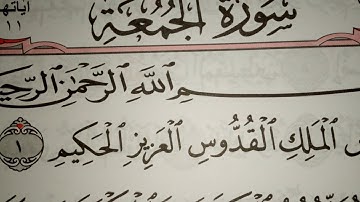 سُورَةُ الجُمُعَةِ
آياتها
١١
ـمِ ٱللَّهِ ٱلرَّحْمَٰنِ ٱلرَّحِيـ
ٱلْمَلِكِ ٱلْقُدُّوسِ ٱلْعَزِيزِ ٱلْحَكِيمِ ١